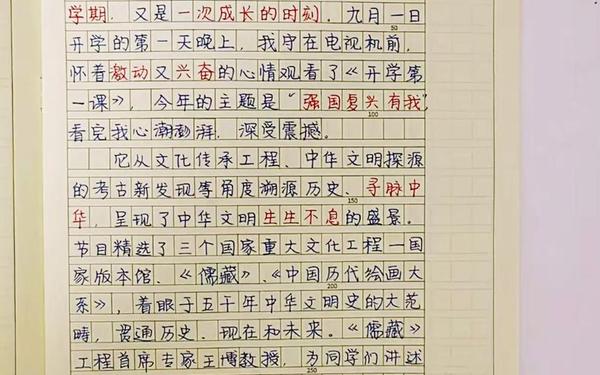 学期，又是一次成长的时刻。九月一日
50
开学的第一天晚上，我守在电视机前，
怀着激动又兴奋的心情观看了《开学第
一课》，今年的主题是“强国复兴有我”，
100
看完我心潮澎湃，深受震撼。
它从文化传承工程、中华文明探源
的考古新发现等角度溯源历史、寻脉中
150
华，呈现了中华文明生生不息的盛景。
节目精选了三个国家重大文化工程—国
家版本馆、《儒藏》、《中国历代绘画大
200
系》，着眼于五千年中华文明史的大范
畴，贯通历史、现在和未来。《儒藏》
工程首席专家王博教授，为同学们讲述
250